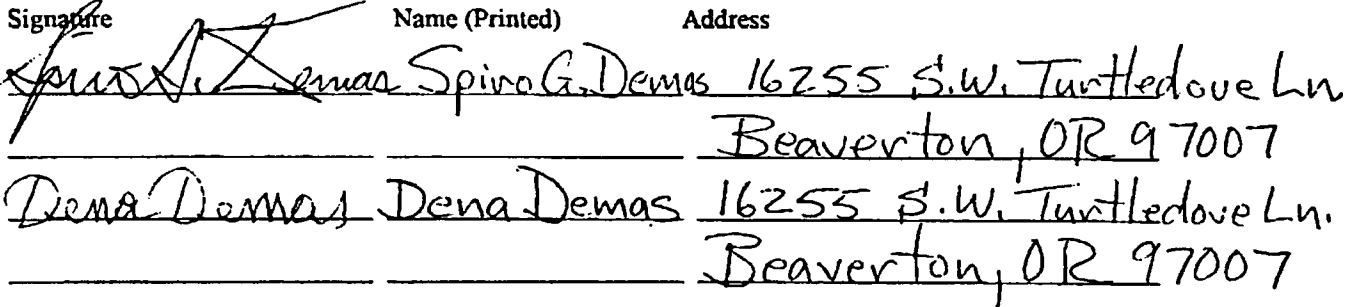 Signature Name (Printed) Address
Spiro G. Demas Spiro G. Demas 16255 S.W. Turtledove Ln
Beaverton, OR 97007
Dena Demas Dena Demas 16255 S.W. Turtledove Ln.
Beaverton, OR 97007